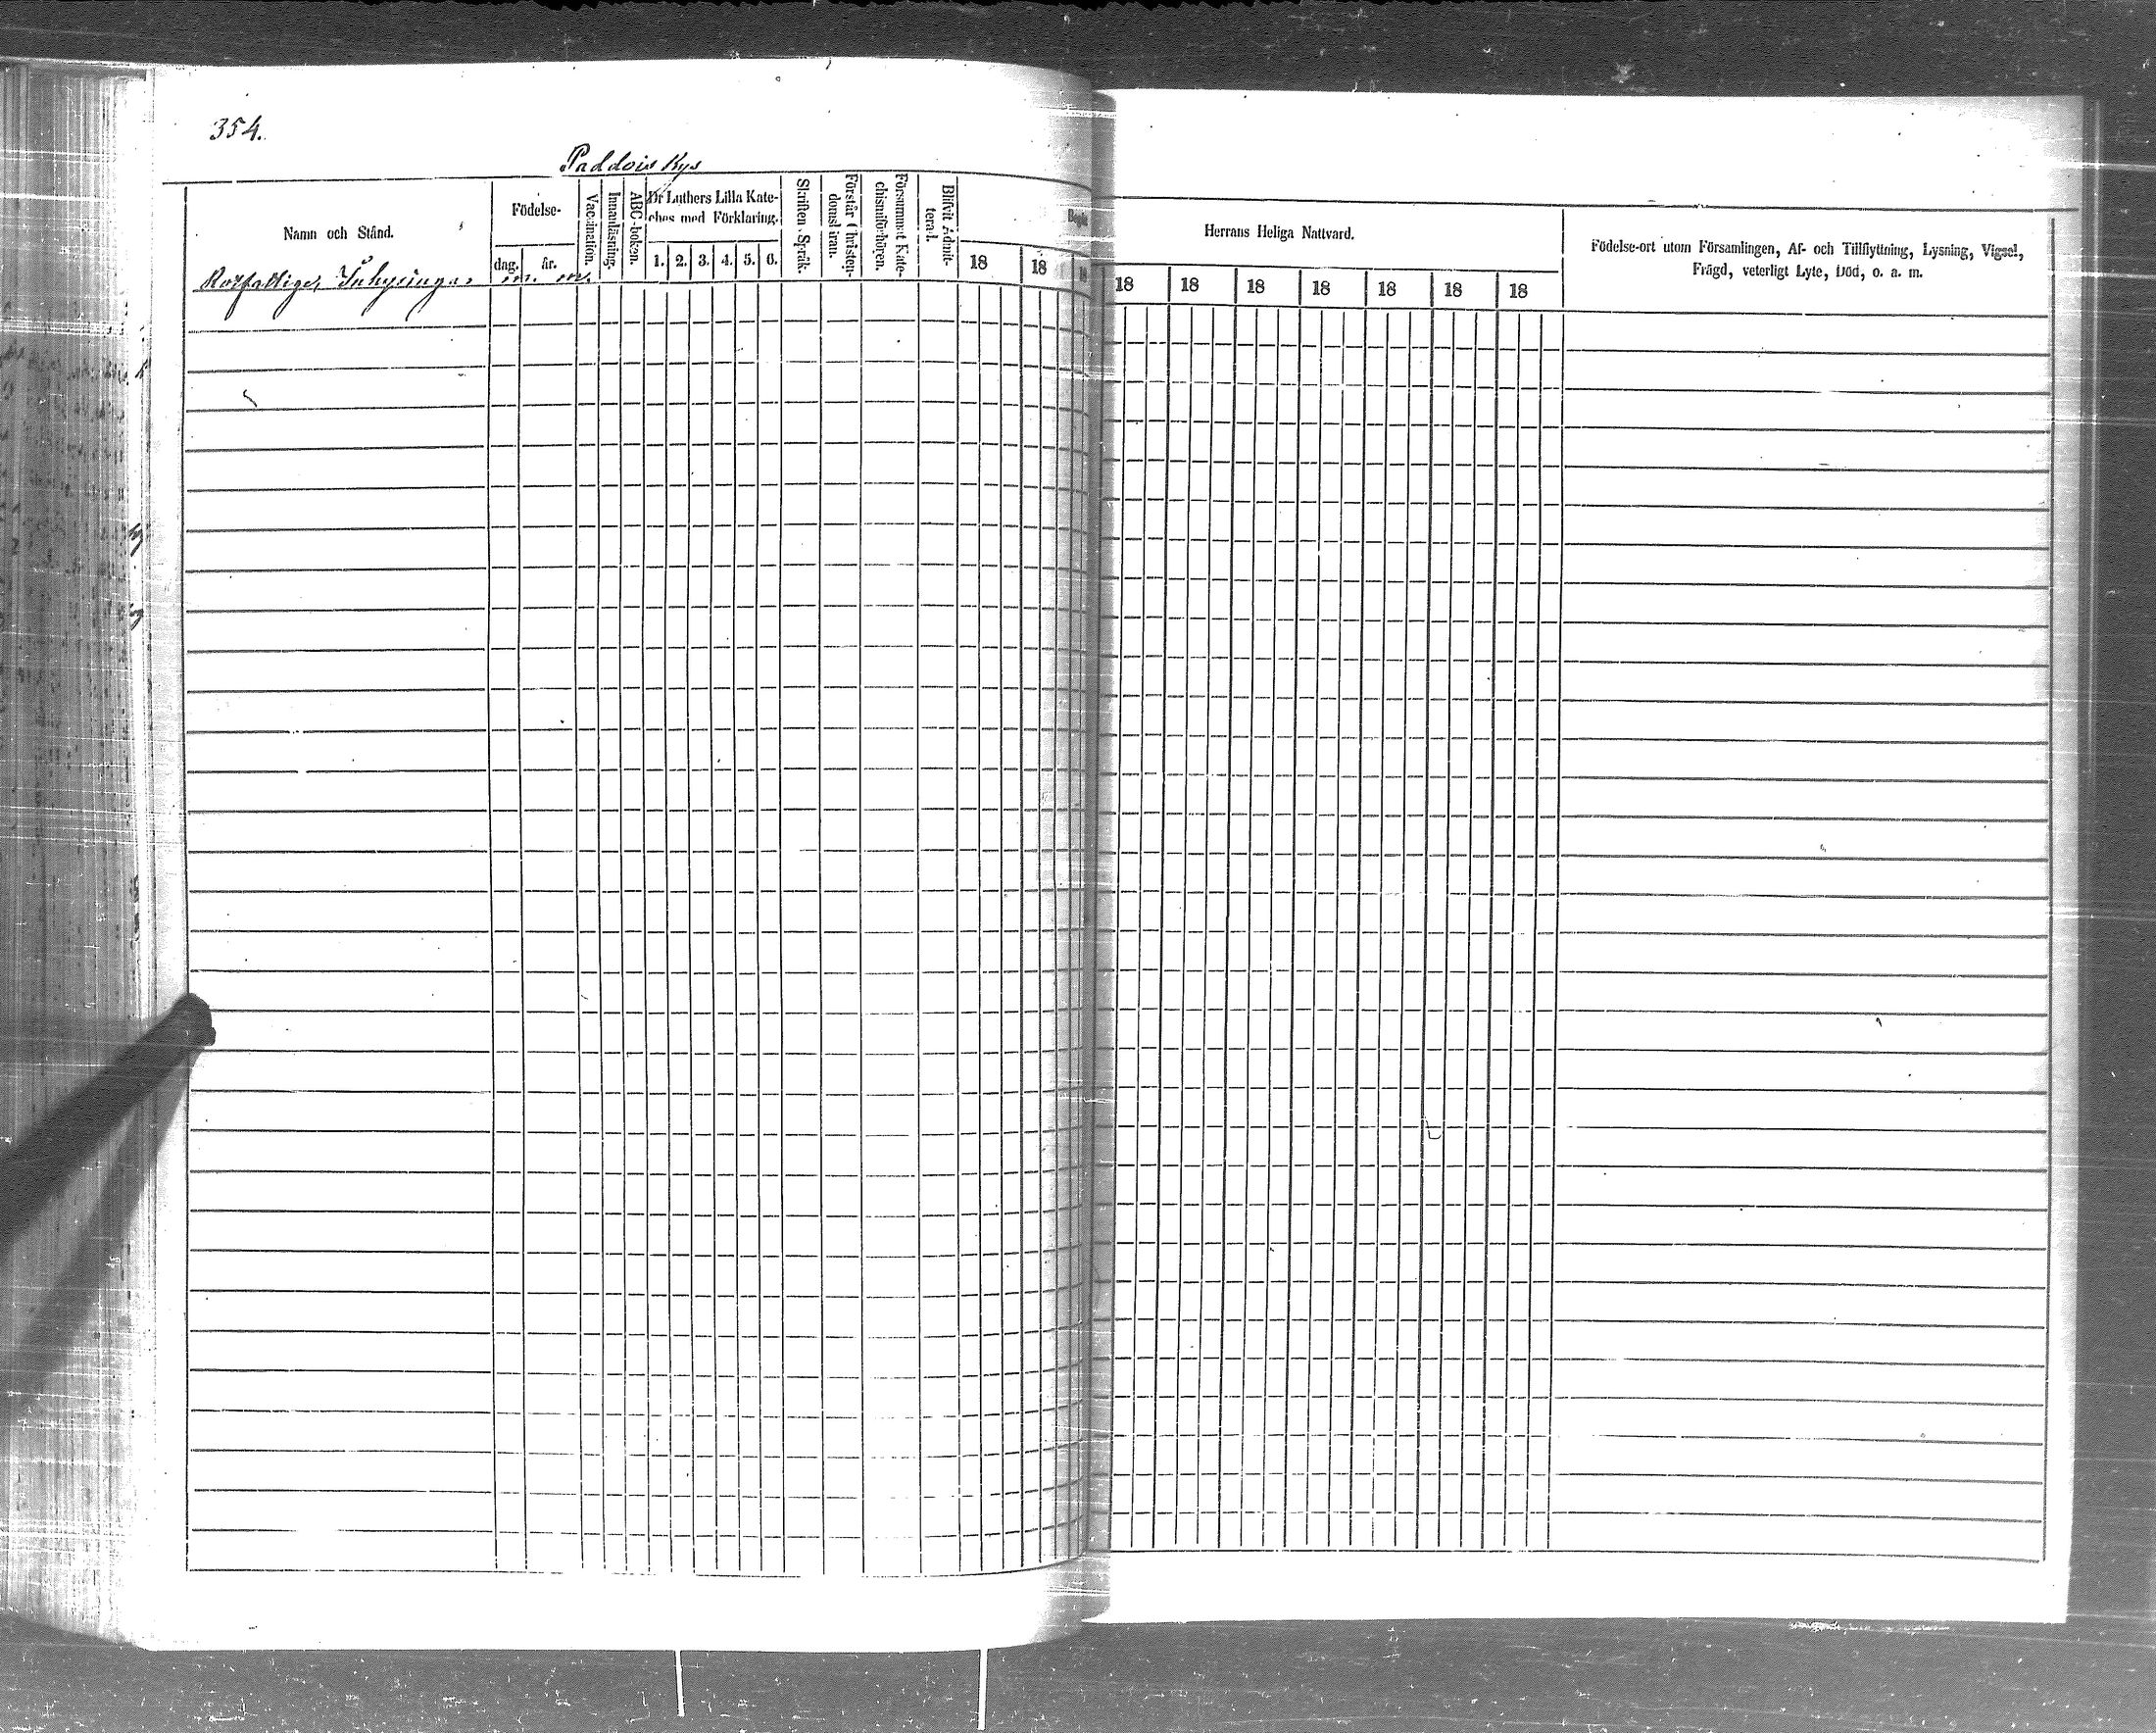 354.
Paddois Kyr
Namn och Stånd.
Födelse-
dag. år.
Vaccination.
Innanläsning.
ABC-boken.
Dr Luthers Lilla Kate-
ches med Förklaring.
1. 2. 3. 4. 5. 6.
Skriftens Språk.
Förstår Christen-
domsläran.
Försummat Kate-
chismiförhören.
Blifvit Admit-
terad.
18 18 18
Herrans Heliga Nattvard.
18 18 18 18 18 18 18
Födelse-ort utom Församlingen, Af- och Tillflyttning, Lysning, Vigsel,
Frägd, veterligt Lyte, Död, o. a. m.
Rotfattige, Inhysingar m. m.